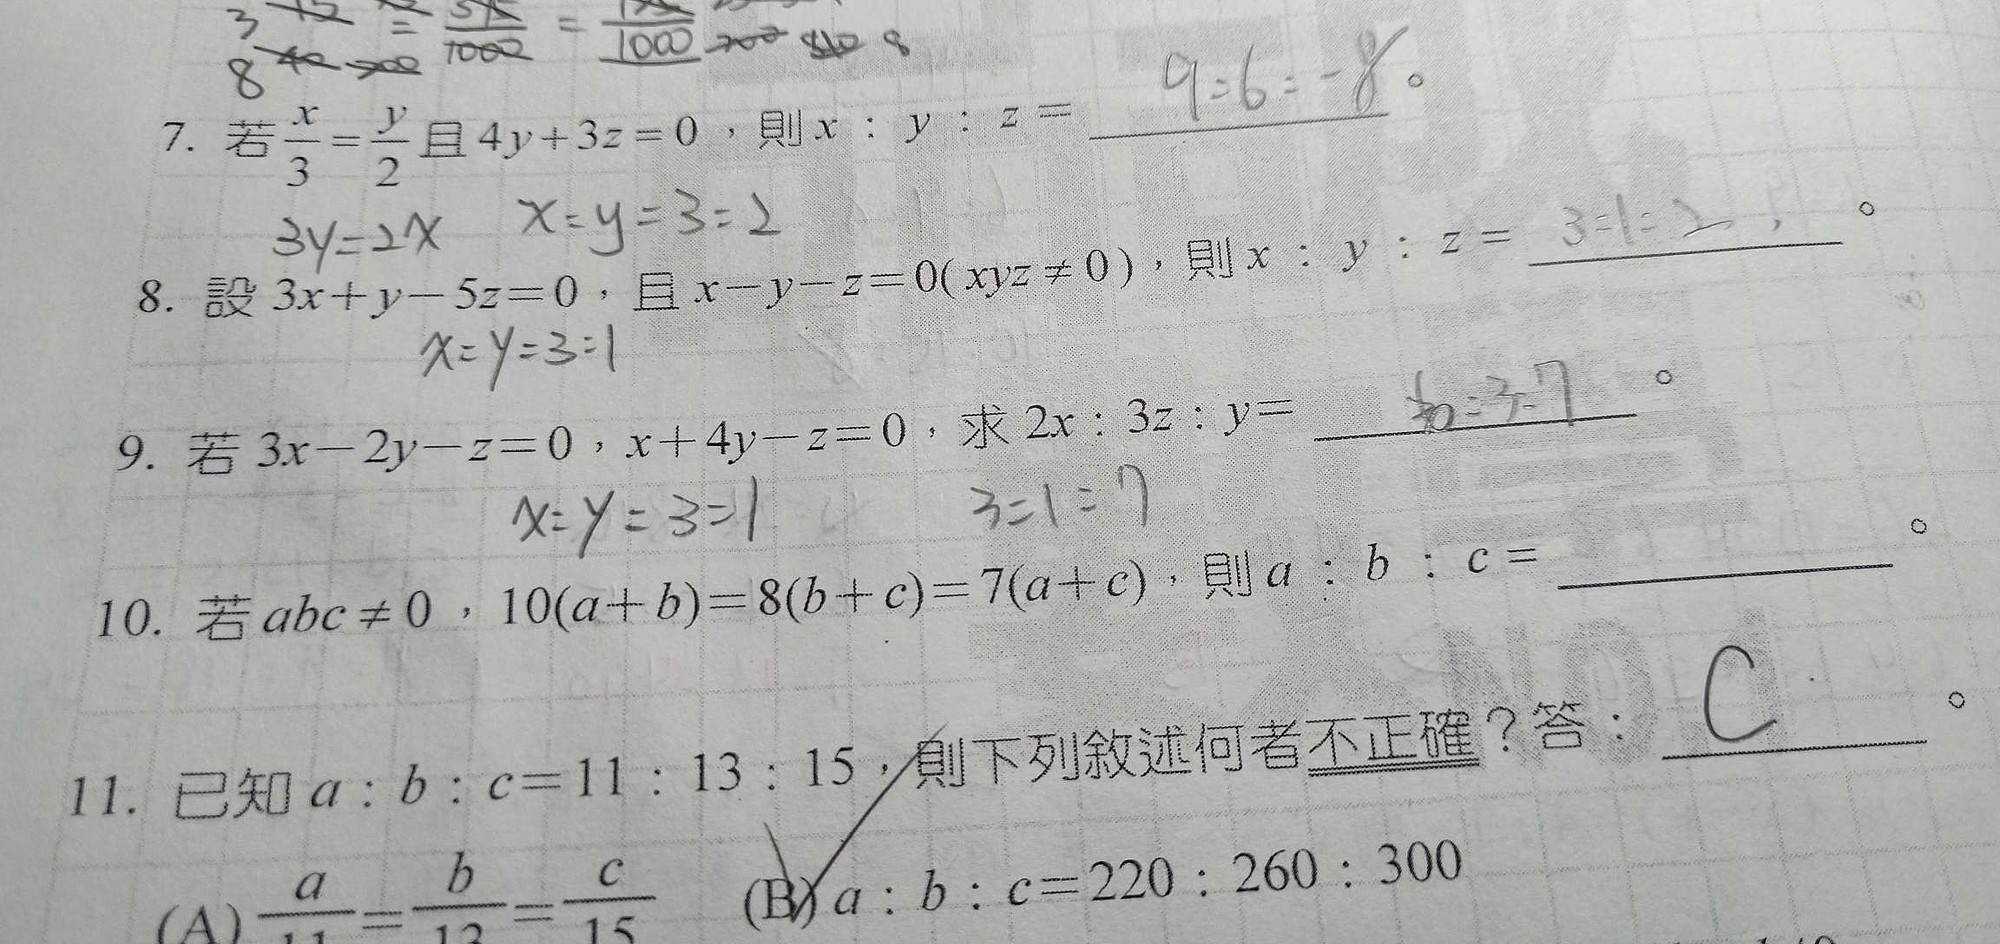 3 = 1000 = 1000 8
8
7. 若 x/3 = y/2 且 4y+3z=0，則 x : y : z = 9:6:-8。
3y=2x x:y=3:2
8. 設 3x+y-5z=0，且 x-y-z=0(xyz≠0)，則 x : y : z = 3:1:2。
x:y=3:1
9. 若 3x-2y-z=0，x+4y-z=0，求 2x : 3z : y=。
x:y=3:1 3:1:7
10. 若 abc≠0，10(a+b)=8(b+c)=7(a+c)，則 a : b : c =。
11. 已知 a : b : c=11 : 13 : 15，則下列敘述何者不正確？答：C。
(A) a/11 = b/13 = c/15 (B) a : b : c=220 : 260 : 300